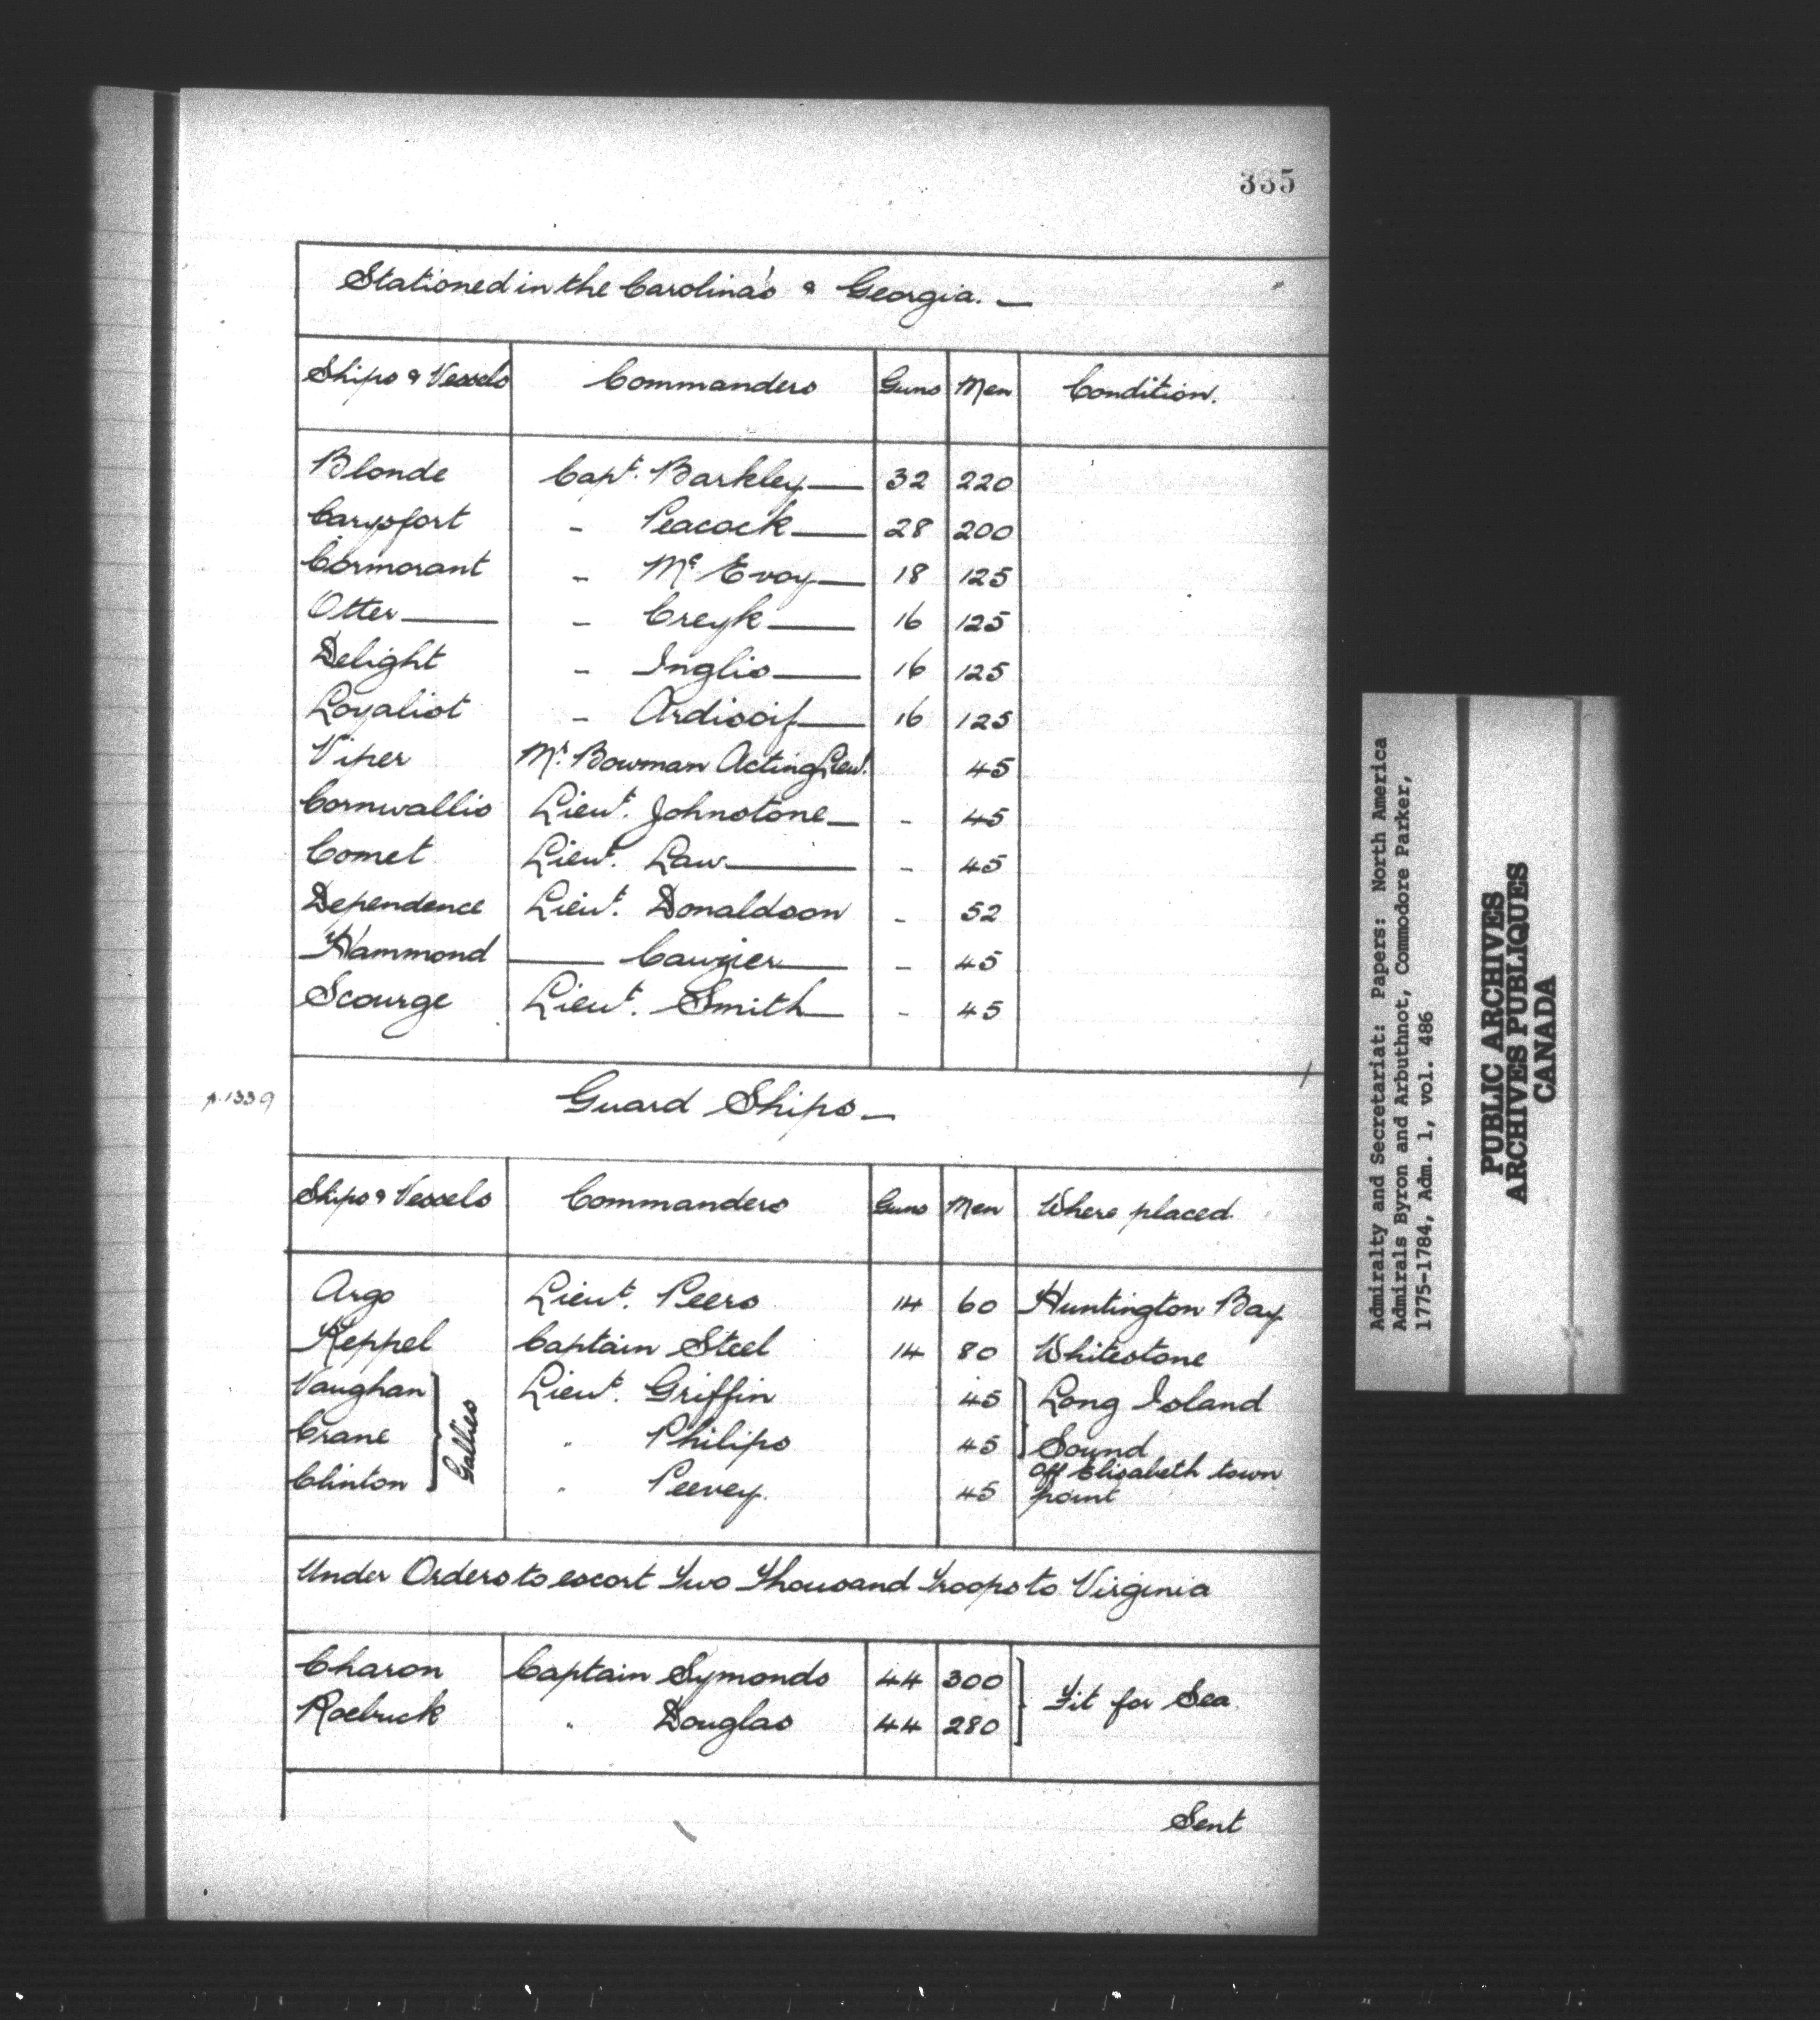 335
Stationed in the Carolina's & Georgia. —
Ships & Vessels Commanders Guns Men Condition.
Blonde Capt. Barkley — 32 220
Carysfort - Peacock — 28 200
Cormorant - Mc Evoy — 18 125
Otter — - Creyk — 16 125
Delight - Inglis — 16 125
Loyalist - Ardisoif — 16 125
Viper Mr. Bowman Acting Lieut. 45
Cornwallis Lieut. Johnstone — - 45
Comet Lieut. Law — - 45
Dependence Lieut. Donaldson - 52
Hammond — - 45
Scourge Lieut. Smith — - 45
p. 1339
Guard Ships —
Ships & Vessels Commanders Guns Men Where placed
Argo Lieut. Peers 14 60 Huntington Bay
Keppel Captain Steel 14 80 Whitestone
Vaughan Lieut. Griffin 45 Long Island
Crane " Philips 45 Sound
Clinton " Peevey. 45 off Elizabeth town point
Gallies
Under Orders to escort Two Thousand Troops to Virginia
Charon Captain Symonds 44 300 Fit for Sea
Roebuck " Douglas 44 280
Sent
Admiralty and Secretariat: Papers: North America
Admirals Byron and Arbuthnot, Commodore Parker,
1775-1784, Adm. 1, vol. 486
PUBLIC ARCHIVES
ARCHIVES PUBLIQUES
CANADA